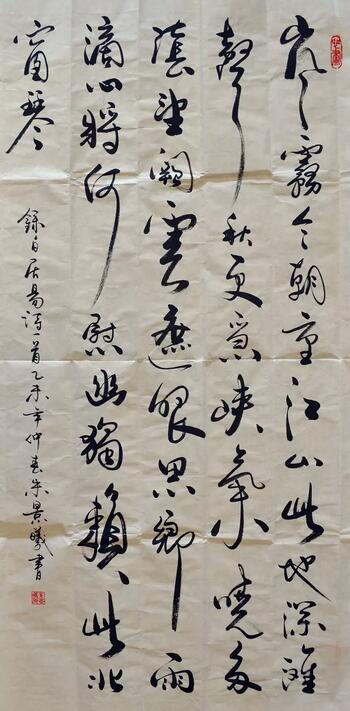 嵐霧今朝重江山此地深灘
聲秋更急峽氣曉多
陰望闕雲遮眼思鄉雨
滴心將何慰幽獨賴此北
窗琴
錄白居易詩一首乙未年仲春朱景曦書